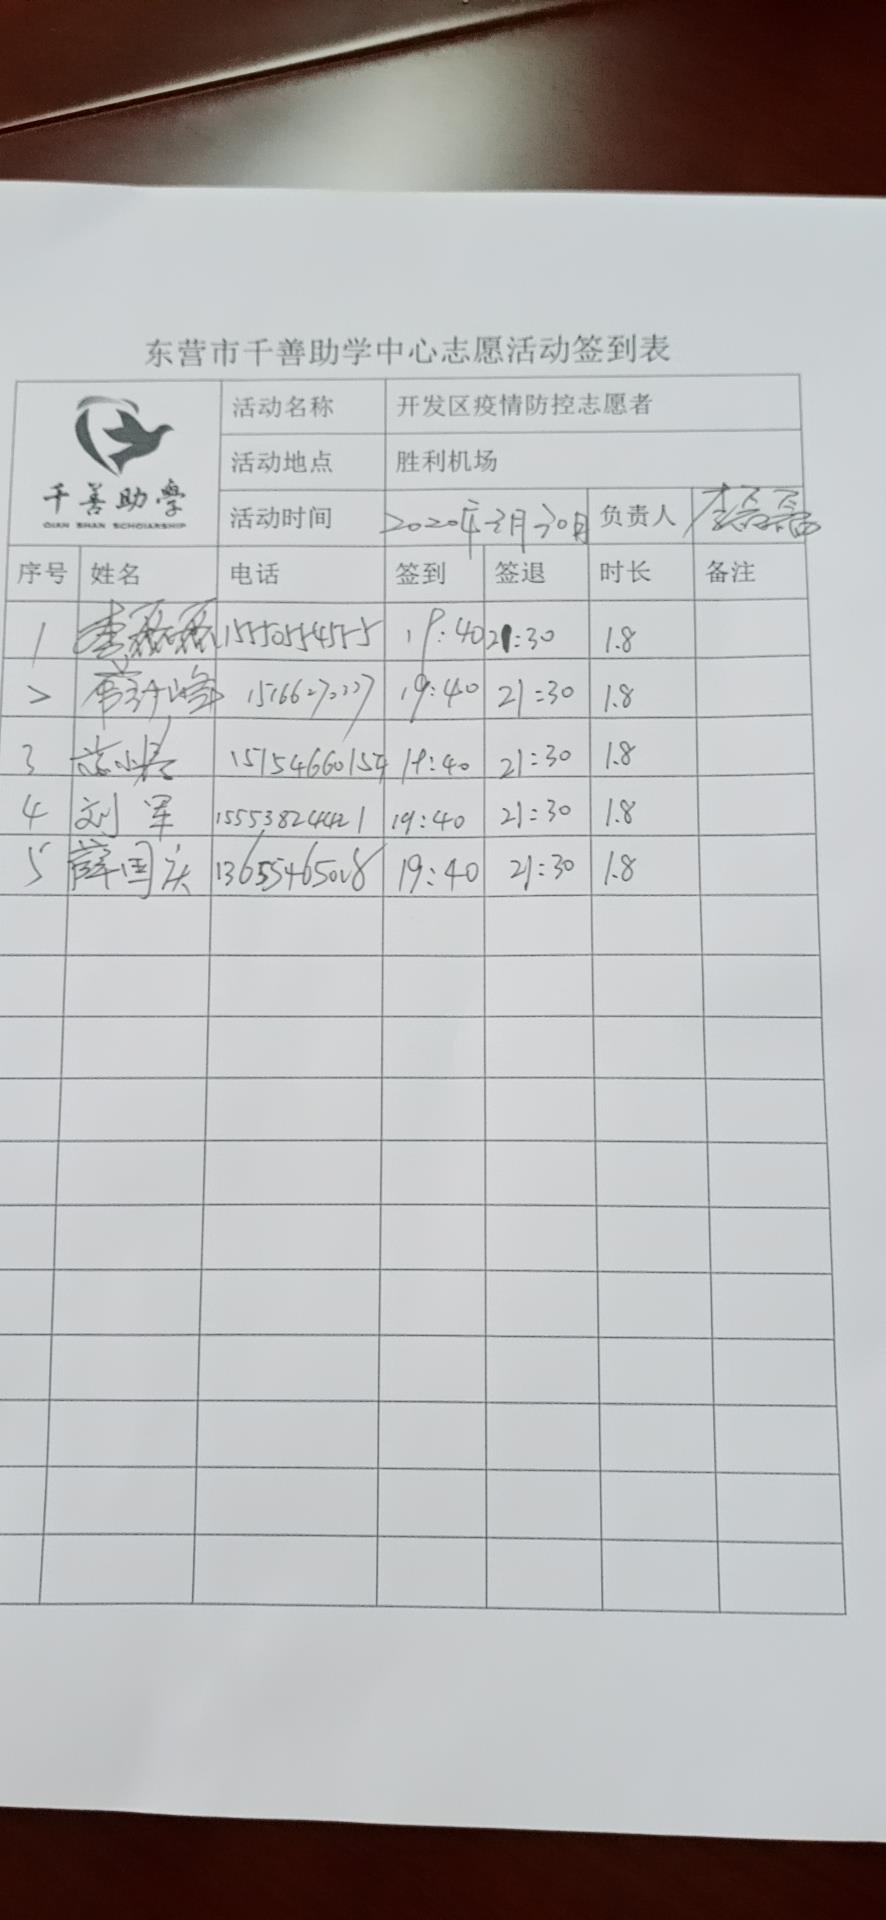 东营市千善助学中心志愿活动签到表
千善助学
QIAN SHAN SCHOLARSHIP
活动名称 开发区疫情防控志愿者
活动地点 胜利机场
活动时间 2020年3月30日 负责人 李磊磊
序号 姓名 电话 签到 签退 时长 备注
1 李磊磊 15550554555 19:40 21:30 1.8
2 19:40 21:30 1.8
3 15154660154 19:40 21:30 1.8
4 刘军 15553824421 19:40 21:30 1.8
5 薛国庆 13655465028 19:40 21:30 1.8